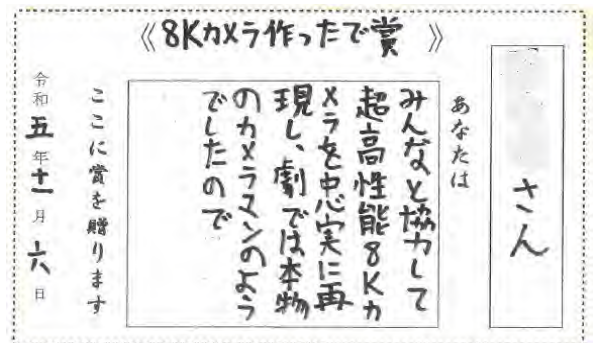 《8Kカメラ作ったで賞》
さん
あなたは
みんなと協力して
超高性能8Kカ
メラを忠実に再
現し、劇では本物
のカメラマンのよう
でしたので
ここに賞を贈ります
令和五年十一月六日